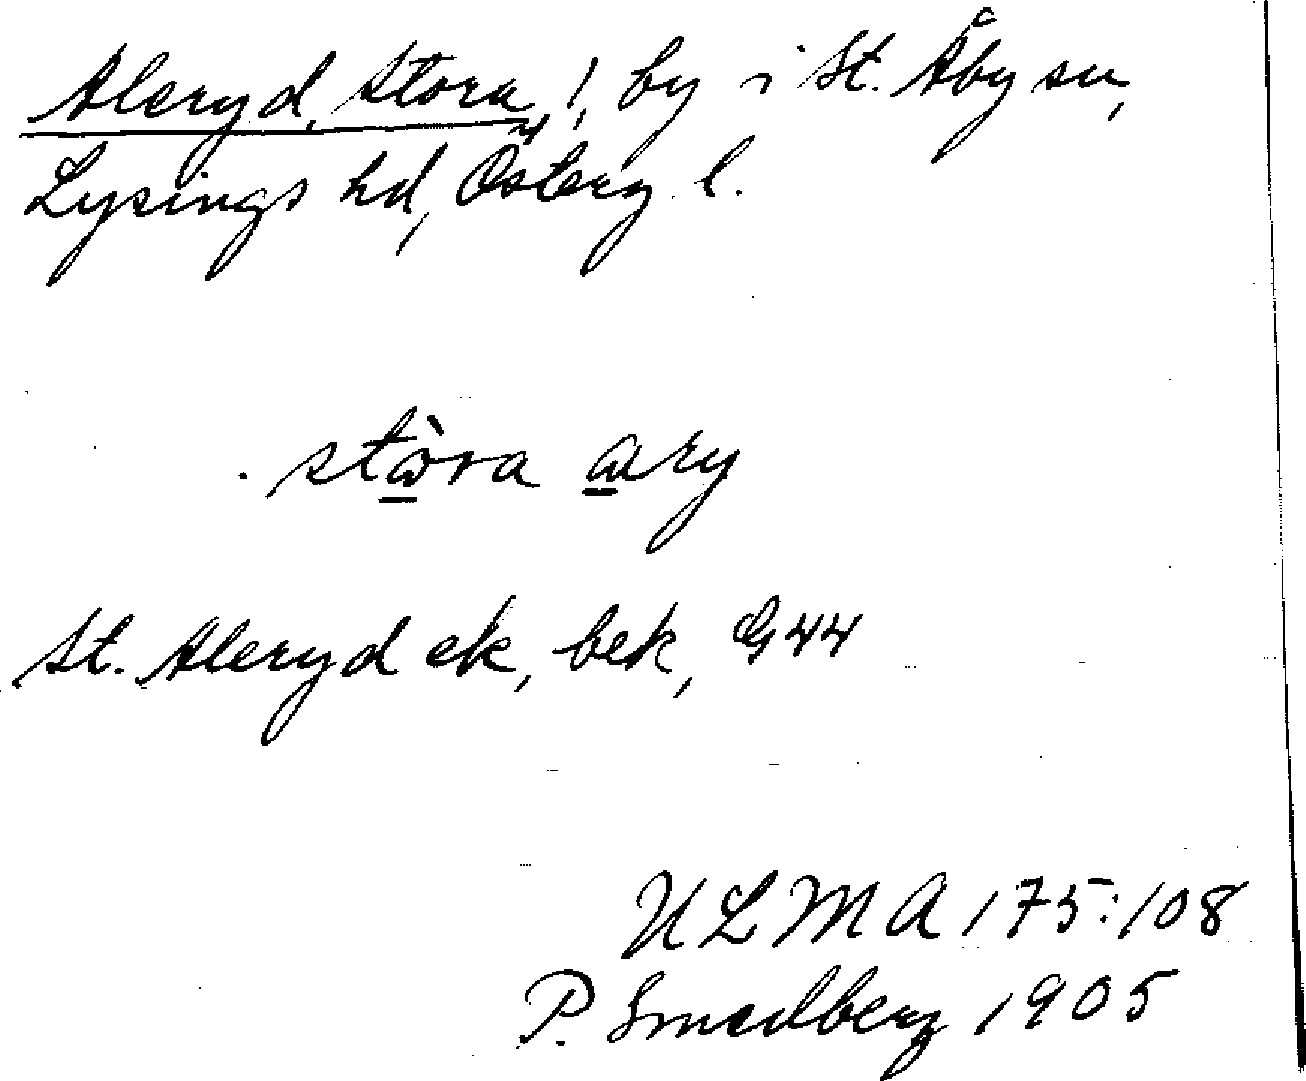 Aleryd, Stora, !, by i St. Åby sn,
Lysings hd, Österg. l.
stòra ary
St. Aleryd ek, bek, G44
ULMA 175:108
P. Smedberg 1905